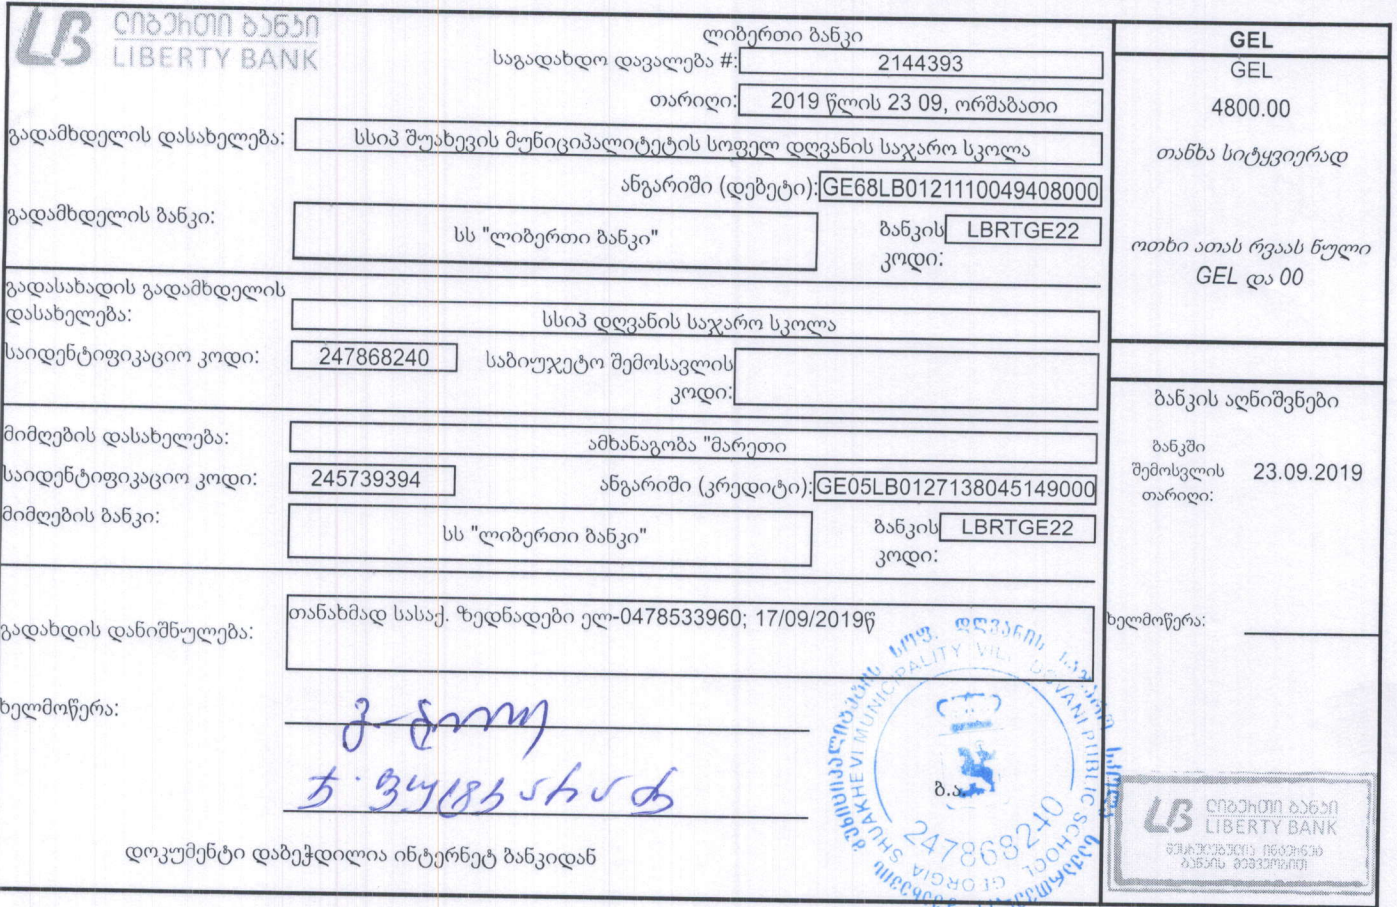 ლიბერთი ბანკი
LIBERTY BANK
ლიბერთი ბანკი
საგადახდო დავალება #: 2144393
თარიღი: 2019 წლის 23 09, ორშაბათი
გადამხდელის დასახელება: სსიპ შუახევის მუნიციპალიტეტის სოფელ დღვანის საჯარო სკოლა
ანგარიში (დებეტი): GE68LB0121110049408000
გადამხდელის ბანკი: სს "ლიბერთი ბანკი" ბანკის კოდი: LBRTGE22
გადასახადის გადამხდელის
დასახელება: სსიპ დღვანის საჯარო სკოლა
საიდენტიფიკაციო კოდი: 247868240 საბიუჯეტო შემოსავლის
კოდი:
მიმღების დასახელება: ამხანაგობა "მარეთი
საიდენტიფიკაციო კოდი: 245739394 ანგარიში (კრედიტი): GE05LB0127138045149000
მიმღების ბანკი: სს "ლიბერთი ბანკი" ბანკის კოდი: LBRTGE22
გადახდის დანიშნულება: თანახმად სასაქ. ზედნადები ელ-0478533960; 17/09/2019წ
ხელმოწერა:
დოკუმენტი დაბეჭდილია ინტერნეტ ბანკიდან
GEL
GEL
4800.00
თანხა სიტყვიერად
ოთხი ათას რვაას ნული
GEL და 00
ბანკის აღნიშვნები
ბანკში
შემოსვლის 23.09.2019
თარიღი:
ხელმოწერა:
ბ.ა.
SHUAKHEVI MUNICIPALITY VIL. DGVANI PUBLIC SCHOOL
GEORGIA
247868240
ლიბერთი ბანკი
LIBERTY BANK
შესრულებულია ინტერნეტ
ბანკის მეშვეობით